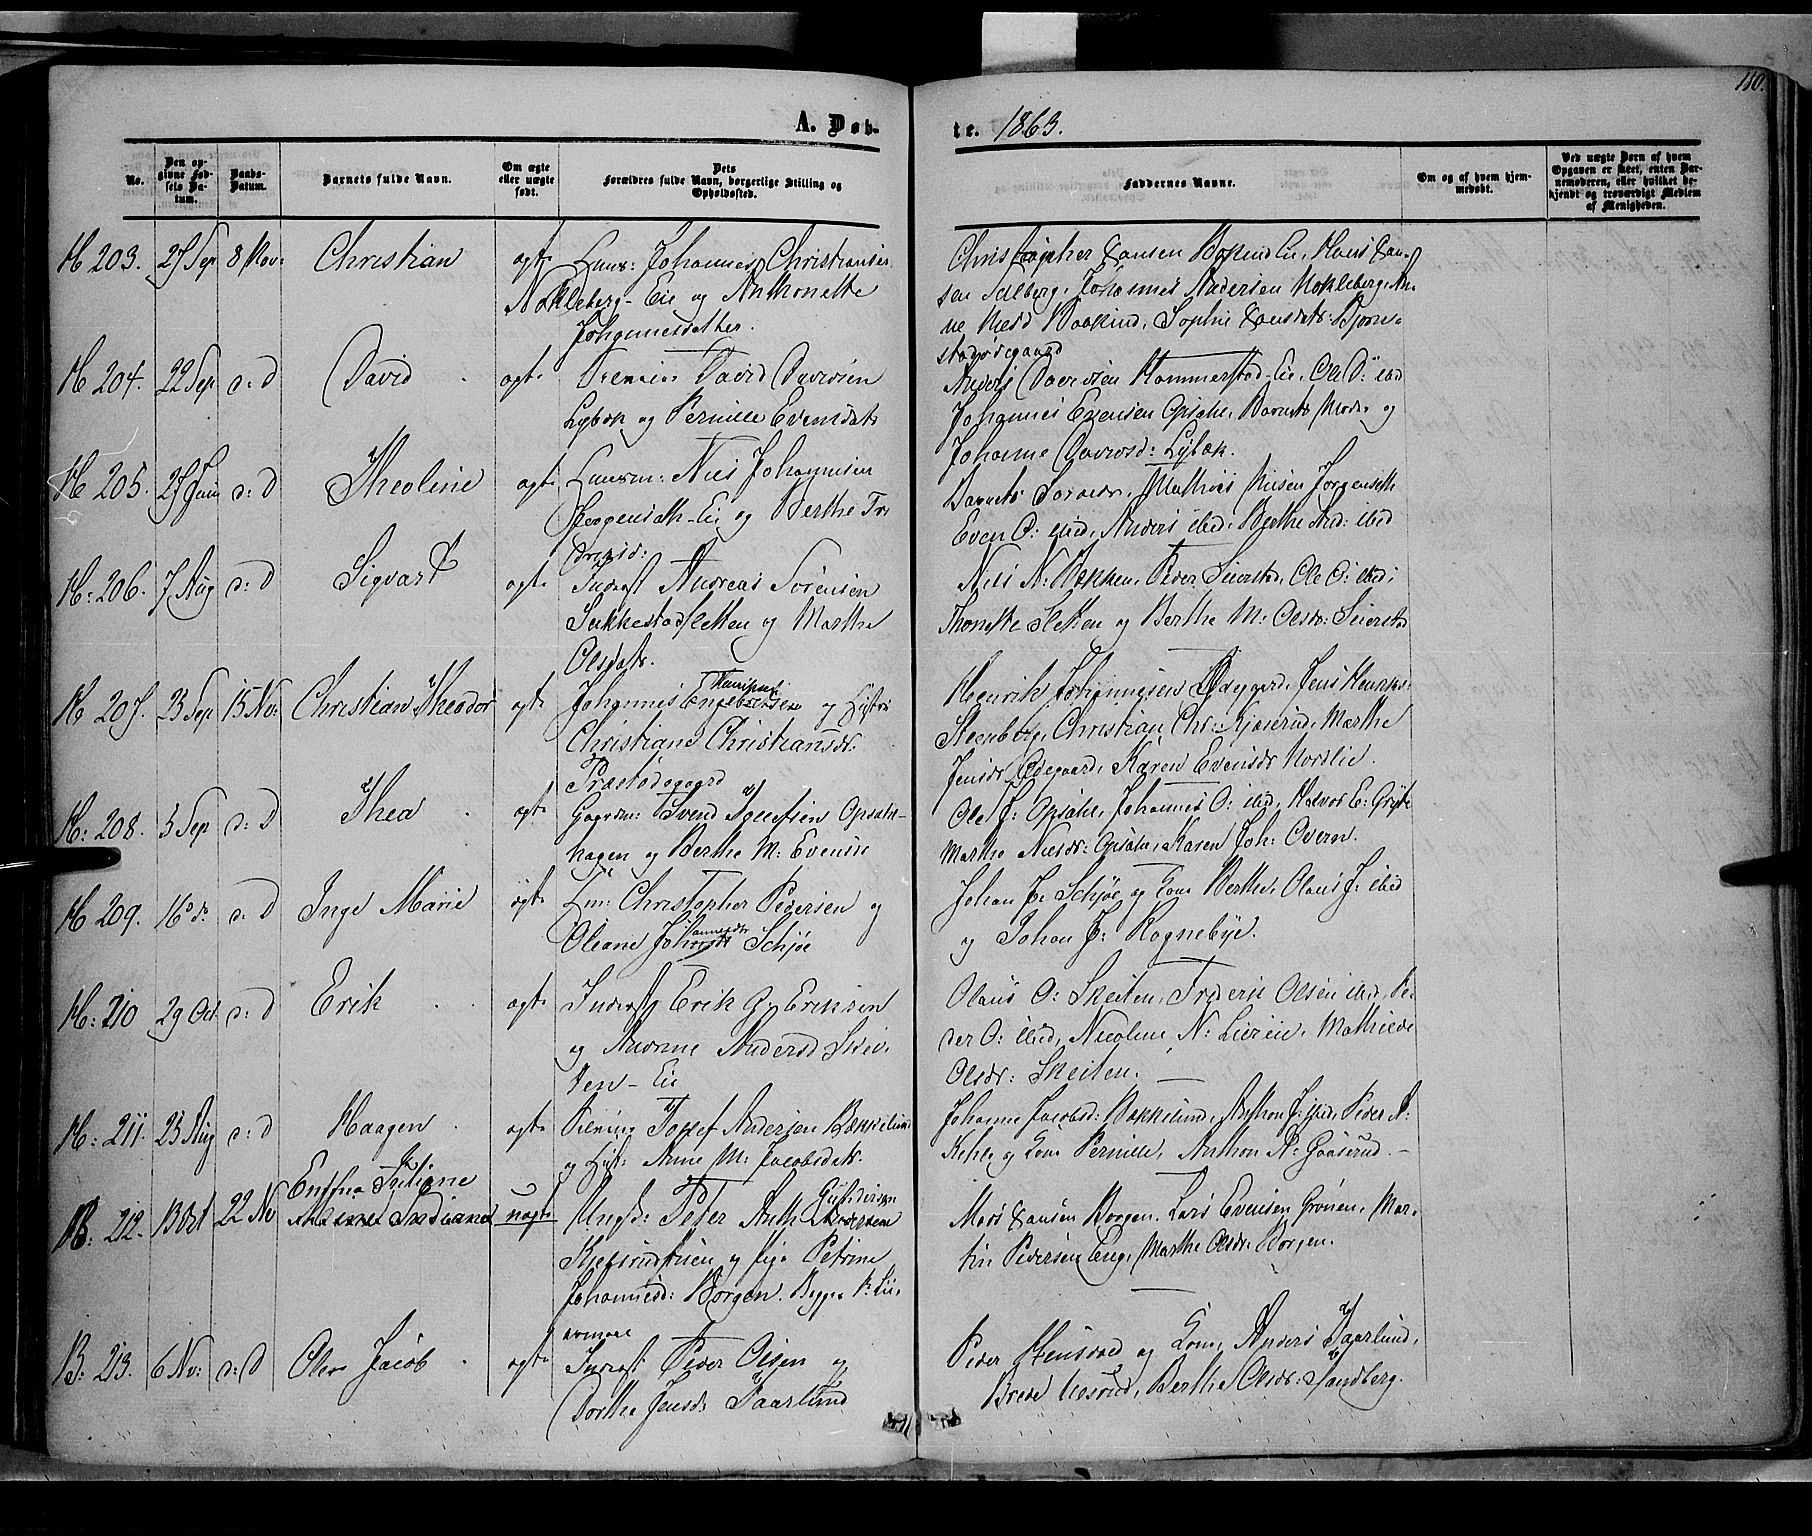 110.
A. Døb-
te. 1863.
No.
Den op-
givne Fød-
sels Da-
tum.
Daabs-
Datum.
Barnets fulde Navn.
Om ægte
eller uægte
født.
Dets
Forældres fulde Navn, borgerlige Stilling og
Opholdssted.
Faddernes Navne.
Om og af hvem hjem-
medøbt.
Ved uægte Børn af hvem
Opgaven er skeet, enten Bar-
nemoderen, eller hvilket be-
kjendt og troværdigt Medlem
af Menigheden.
H 203. 27 Sep 8 Nov: Christian ægte Huusm: Johannes Christiansen
Nøkleberg-Eie og Anthonette
Johannesdatter.
Christopher Hansen Eie, Hans Han-
sen Johannes Andersen Nøkleberg, An-
ne Sophie Hansdatr: Bjørn-
stadødegaard
H 204. 22 Sep d: D David ægte David Davidsen
Lybæk og Pernille Evensdatr
Anders Davidsen Hammerstad-Eie, Ole D: ibid
Johannes Evensen Opsahl, Barnets Moder og
Johanne Davidsd: Lybæk.
H 205. 27 Juni d: D Theoline ægte Huusm: Nils Johannesen
Jørgensæth-Eie og Berthe
Barnets Forældr, Mathias Nilsen Jørgensæth
Even O: ibid, Anders ibid, Berthe And: ibid
H: 206. 7 Aug d: D Sigvart ægte Inderst Andreas Sørensen
Sukkestadsletten og Marthe
Olsdatr.
Nils N: Bækken, Peder Seierstad, Ole O: ibid,
Thonette Sletten og Berthe M: Olsdr: Seierstad
H 207. 23 Sep 15 Nv: Christian Theodor ægte Johannes Engebretsen og Hustru
Christiane Christiansdr:
Præstødegaard
Henrik Johannesen Ødegard, Jens Henriks:
Steenberg, Christian Chr: Kjøserud, Marthe
Jensdr Ødegaard, Karen Evensdr Nordlie.
H: 208. 5 Sep d: D Thea ægte Gaardm: Svend Tollefsen Opsahl-
hagen og Berthe M: Evensdr
Ole J: Opsahl, Johannes O: ibid, Halvor E:
Marthe Nilsdr: Opsahl, Karen Joh: Overn.
H 209. 16 d: d: D Inge Marie ægte Hm: Christopher Pedersen og
Oleane Johannesdr Schjøe
Johan J: Schjøe og Kone Berthe, Olaus J: ibid
og Johan J: Rognebye.
H: 210 29 Oct d: D Erik ægte Inderst Erik G. Eriksen
og Andersd Skei-
ten-Eie
Olaus O: Skeiten, Frederik Olsen ibid, Pe-
der O: ibid, Nicoline N: Liereie, Mathilde
Olsdr: Skeiten.
H: 211. 23 Aug d: D Haagen ægte Tollef Andersen Bækkelund
og Hust: Anne M: Jacobsdatr.
Johanne Jacobsd: Bækkelund, Anthon J: ibid, Peder A:
og Kone Pernille, Anthon A: Gaaserud.
B: 212. 13 Oct 22 Nv Juliane uægte Ungk: Peter Anth: Gundersen
og Pige Petrine
Johannesd: Borgen. Begge
Mads Hansen Borgen, Lars Evensen Grønen, Mar-
tin Pedersen Eng, Marthe Olsdr: Borgen.
B: 213. 6 Nv: d: D Ole Jacob ægte Inderst Peder Olsen og
Dorthe Jensdr Faarlund
Peder og Kone, Anders Faarlund,
Brede Berthe Olsdr: Sandberg.